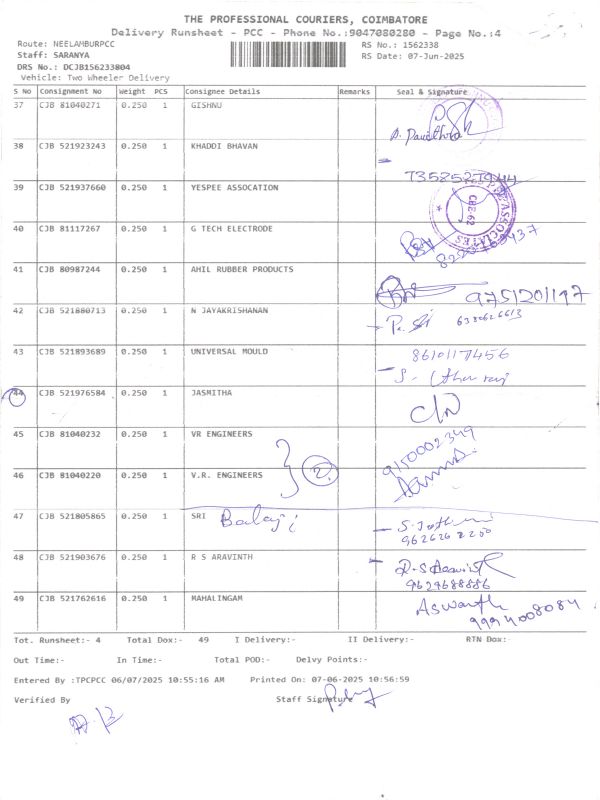 THE PROFESSIONAL COURIERS, COIMBATORE
Delivery Runsheet - PCC - Phone No.:9047080280 - Page No.:4
Route: NEELAMBURPCC RS No.: 1562338
Staff: SARANYA RS Date: 07-Jun-2025
DRS No.: DCJB156233804
Vehicle: Two Wheeler Delivery
S No Consignment No Weight PCS Consignee Details Remarks Seal & Signature
37 CJB 81040271 0.250 1 GISHNU
38 CJB 521923243 0.250 1 KHADDI BHAVAN
7358527944
39 CJB 521937660 0.250 1 YESPEE ASSOCATION
CBE-62
ASSOCIATES
40 CJB 81117267 0.250 1 G TECH ELECTRODE
41 CJB 80987244 0.250 1 AHIL RUBBER PRODUCTS
9751201197
42 CJB 521880713 0.250 1 N JAYAKRISHANAN
6380626613
43 CJB 521893689 0.250 1 UNIVERSAL MOULD
8610117456
44 CJB 521976584 0.250 1 JASMITHA
45 CJB 81040232 0.250 1 VR ENGINEERS
9150002349
46 CJB 81040220 0.250 1 V.R. ENGINEERS
2
47 CJB 521805865 0.250 1 SRI Balaji
9626262200
48 CJB 521903676 0.250 1 R S ARAVINTH
R.S Aravinth
9629688886
49 CJB 521762616 0.250 1 MAHALINGAM
Aswanth
9994008084
Tot. Runsheet:- 4 Total Dox:- 49 I Delivery:- II Delivery:- RTN Dox:-
Out Time:- In Time:- Total POD:- Delvy Points:-
Entered By :TPCPCC 06/07/2025 10:55:16 AM Printed On: 07-06-2025 10:56:59
Verified By Staff Signature